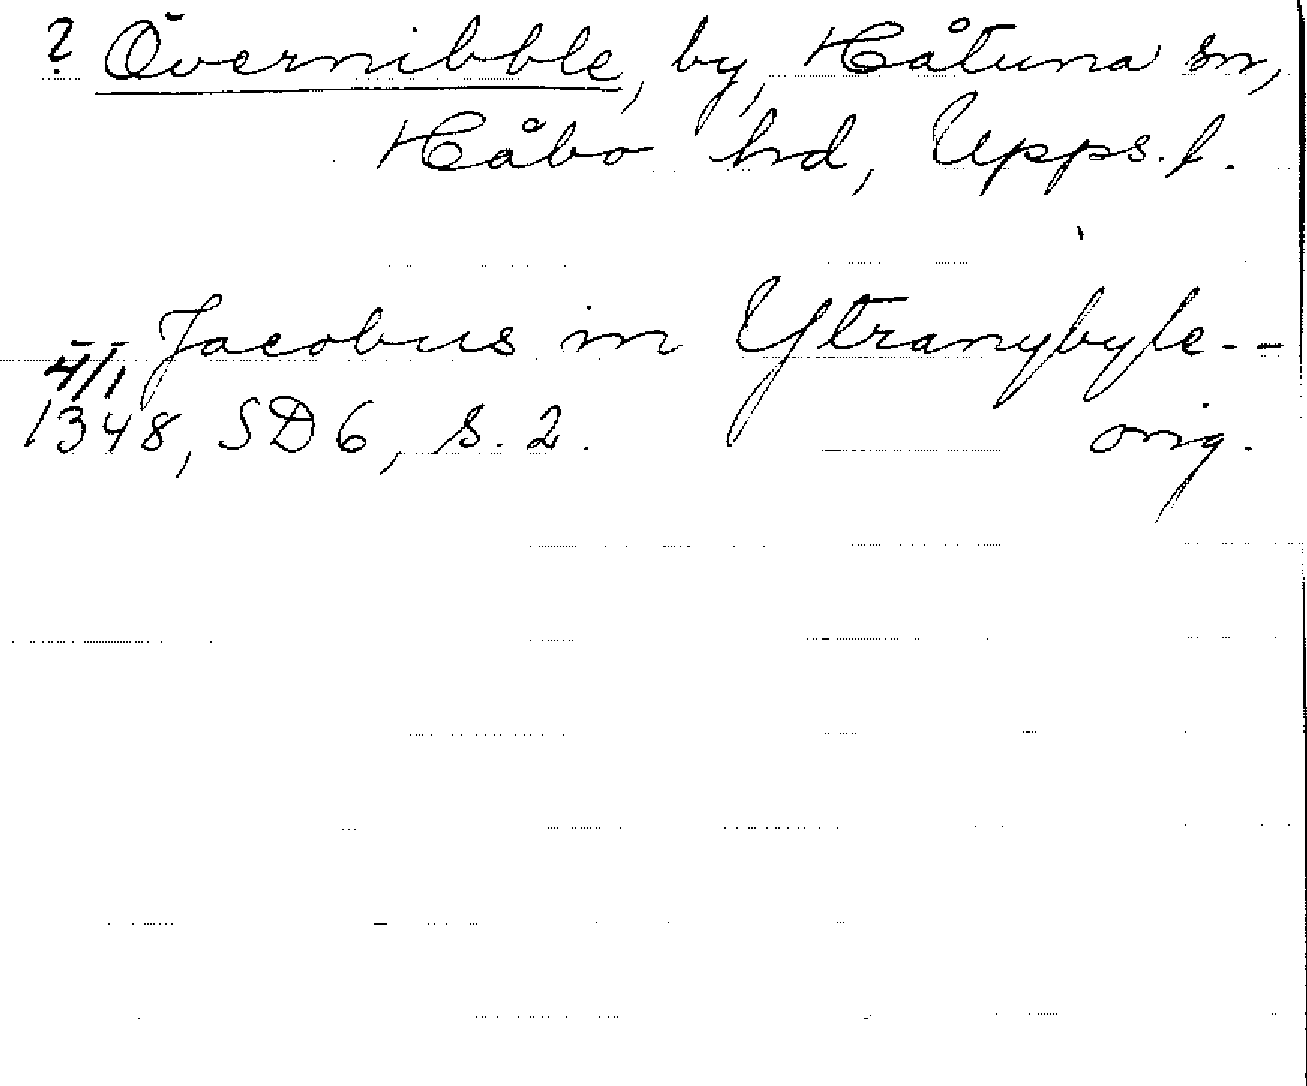 ? Övernibble, by, Håtuna sn,
Håbo hd, Upps. l.
Jacobus in Ytranybyle --
4/1 1348, SD 6, s. 2. orig.